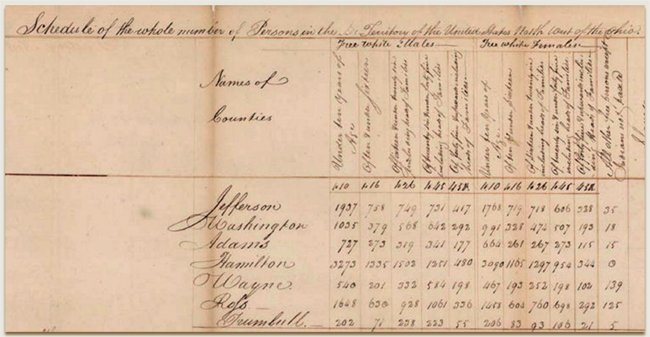 Schedule of the whole number of Persons in the Territory of the United States North West of the Ohio
Free White Males Free White Females
Names of
Counties
Under ten Years of Age
Of ten & under Sixteen
Of Sixteen & under twenty six including heads of Families
Of twenty six & under forty five including heads of Families
Of forty five & upwards including heads of Families
Under ten Years of Age
Of ten & under Sixteen
Of Sixteen & under twenty six including heads of Families
Of twenty six & under forty five including heads of Families
Of forty five & upwards including heads of Families
All other free persons except Indians not taxed
to 10 to 16 to 26 to 45 45 &c to 10 to 16 to 26 to 45 45 &c
Jefferson 1937 758 749 731 417 1768 719 718 606 328 35
Washington 1035 379 568 642 292 991 328 474 507 193 18
Adams 727 273 319 341 177 664 261 267 273 115 15
Hamilton 3273 1335 1502 1251 480 3090 1165 1297 954 344 0
Wayne 540 201 332 584 198 467 193 252 198 102 139
Ross 1648 630 928 1061 336 1458 604 760 698 292 125
Trumbull 202 71 228 223 55 206 83 93 106 21 5